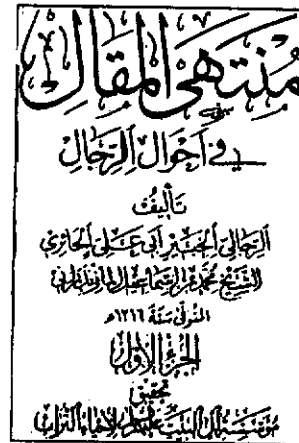 مُنْتَهَى المَقَالِ
في أَحْوَالِ الرِّجَالِ
تَأليفُ
الرِّجَالي الخَبِيرِ أَبي عَلي الحَائِري
الشَّيْخ مُحَمَّد بْن إِسْمَاعِيل المَازَنْدَرَاني
المتوفى سَنَة ١٢١٦هـ
الجُزْءُ الأَوَّلُ
تَحْقِيق
مُؤَسَّسَةُ آل البَيْتِ عَلَيْهِمُ السَّلَام لإِحْيَاءِ التُّرَاثِ